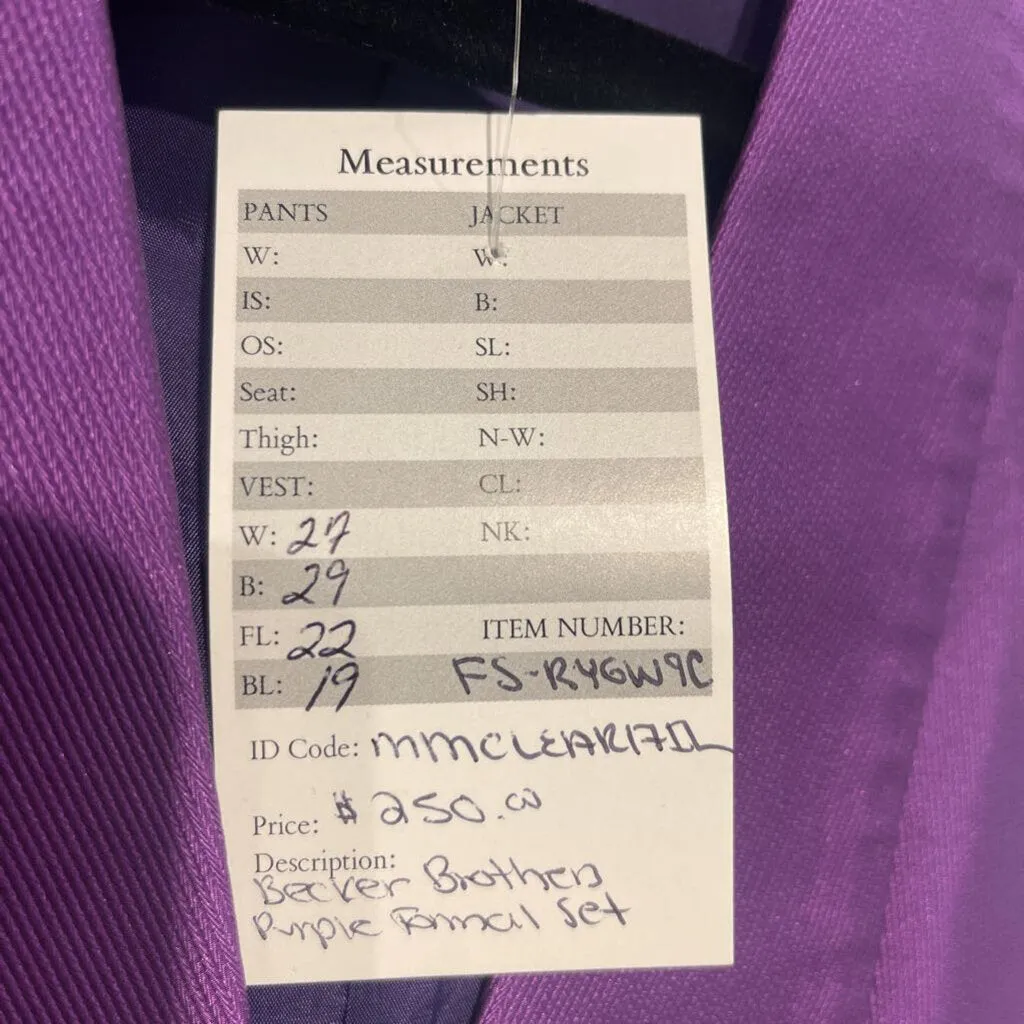 Measurements
PANTS JACKET
W: W:
IS: B:
OS: SL:
Seat: SH:
Thigh: N-W:
VEST: CL:
W: 27 NK:
B: 29
FL: 22 ITEM NUMBER:
BL: 19 FS-RYGW9C
ID Code: MMCLEAR17DL
Price: $250.00
Description:
Becker Brothers
Purple Formal Set